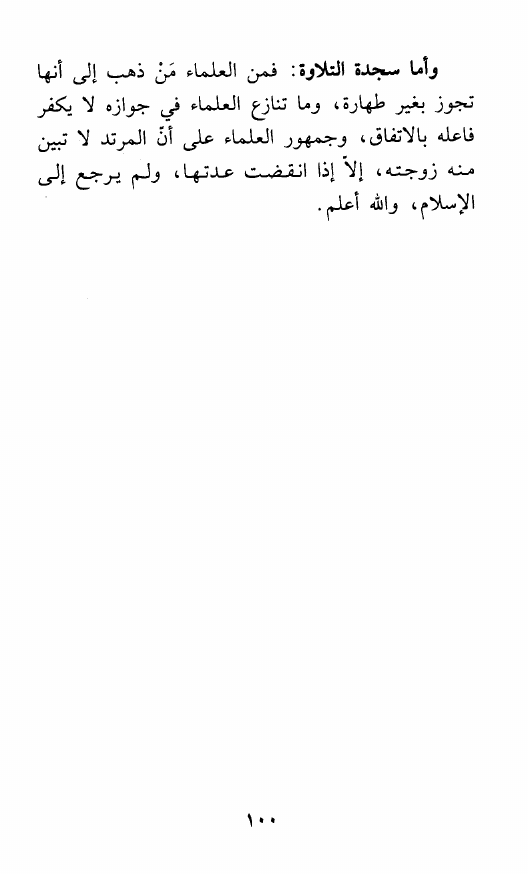 وأما سجدة التلاوة: فمن العلماء مَنْ ذهب إلى أنها
تجوز بغير طهارة، وما تنازع العلماء في جوازه لا يكفر
فاعله بالاتفاق، وجمهور العلماء على أنّ المرتد لا تبين
منه زوجته، إلاّ إذا انقضت عدتها، ولم يرجع إلى
الإسلام، والله أعلم.
١٠٠